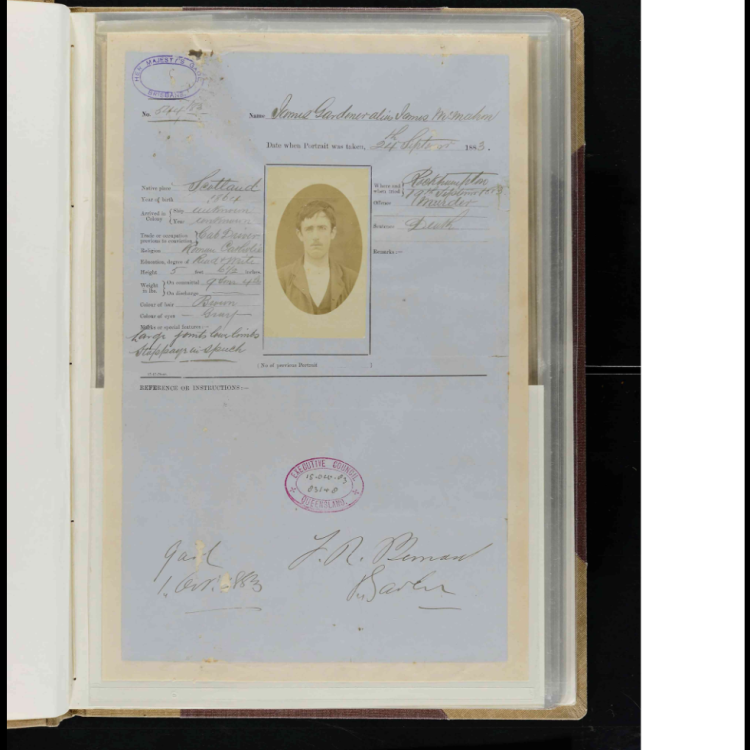 HER MAJESTY'S GAOL
BRISBANE
No.
Name James Gardiner alias James McMahon
Date when Portrait was taken, 24th Septr 1883.
Native place Scotland
Year of birth 1864
Arrived in Colony { Ship unknown
Year unknown
Trade or occupation previous to conviction } Cab Driver
Religion Roman Catholic
Education, degree of Read & Write
Height 5 feet 6½ inches
Weight in lbs. { On committal
On discharge
Colour of hair Brown
Colour of eyes Gray
Marks or special features:—
Large joints low limbs
Stoppage in speech
Where and when tried } Rockhampton
1883
Offence Murder
Sentence Death
Remarks:—
(No. of previous Portrait )
REFERENCE OR INSTRUCTIONS:—
EXECUTIVE COUNCIL
QUEENSLAND
Gaol
1. 1883
F. R.